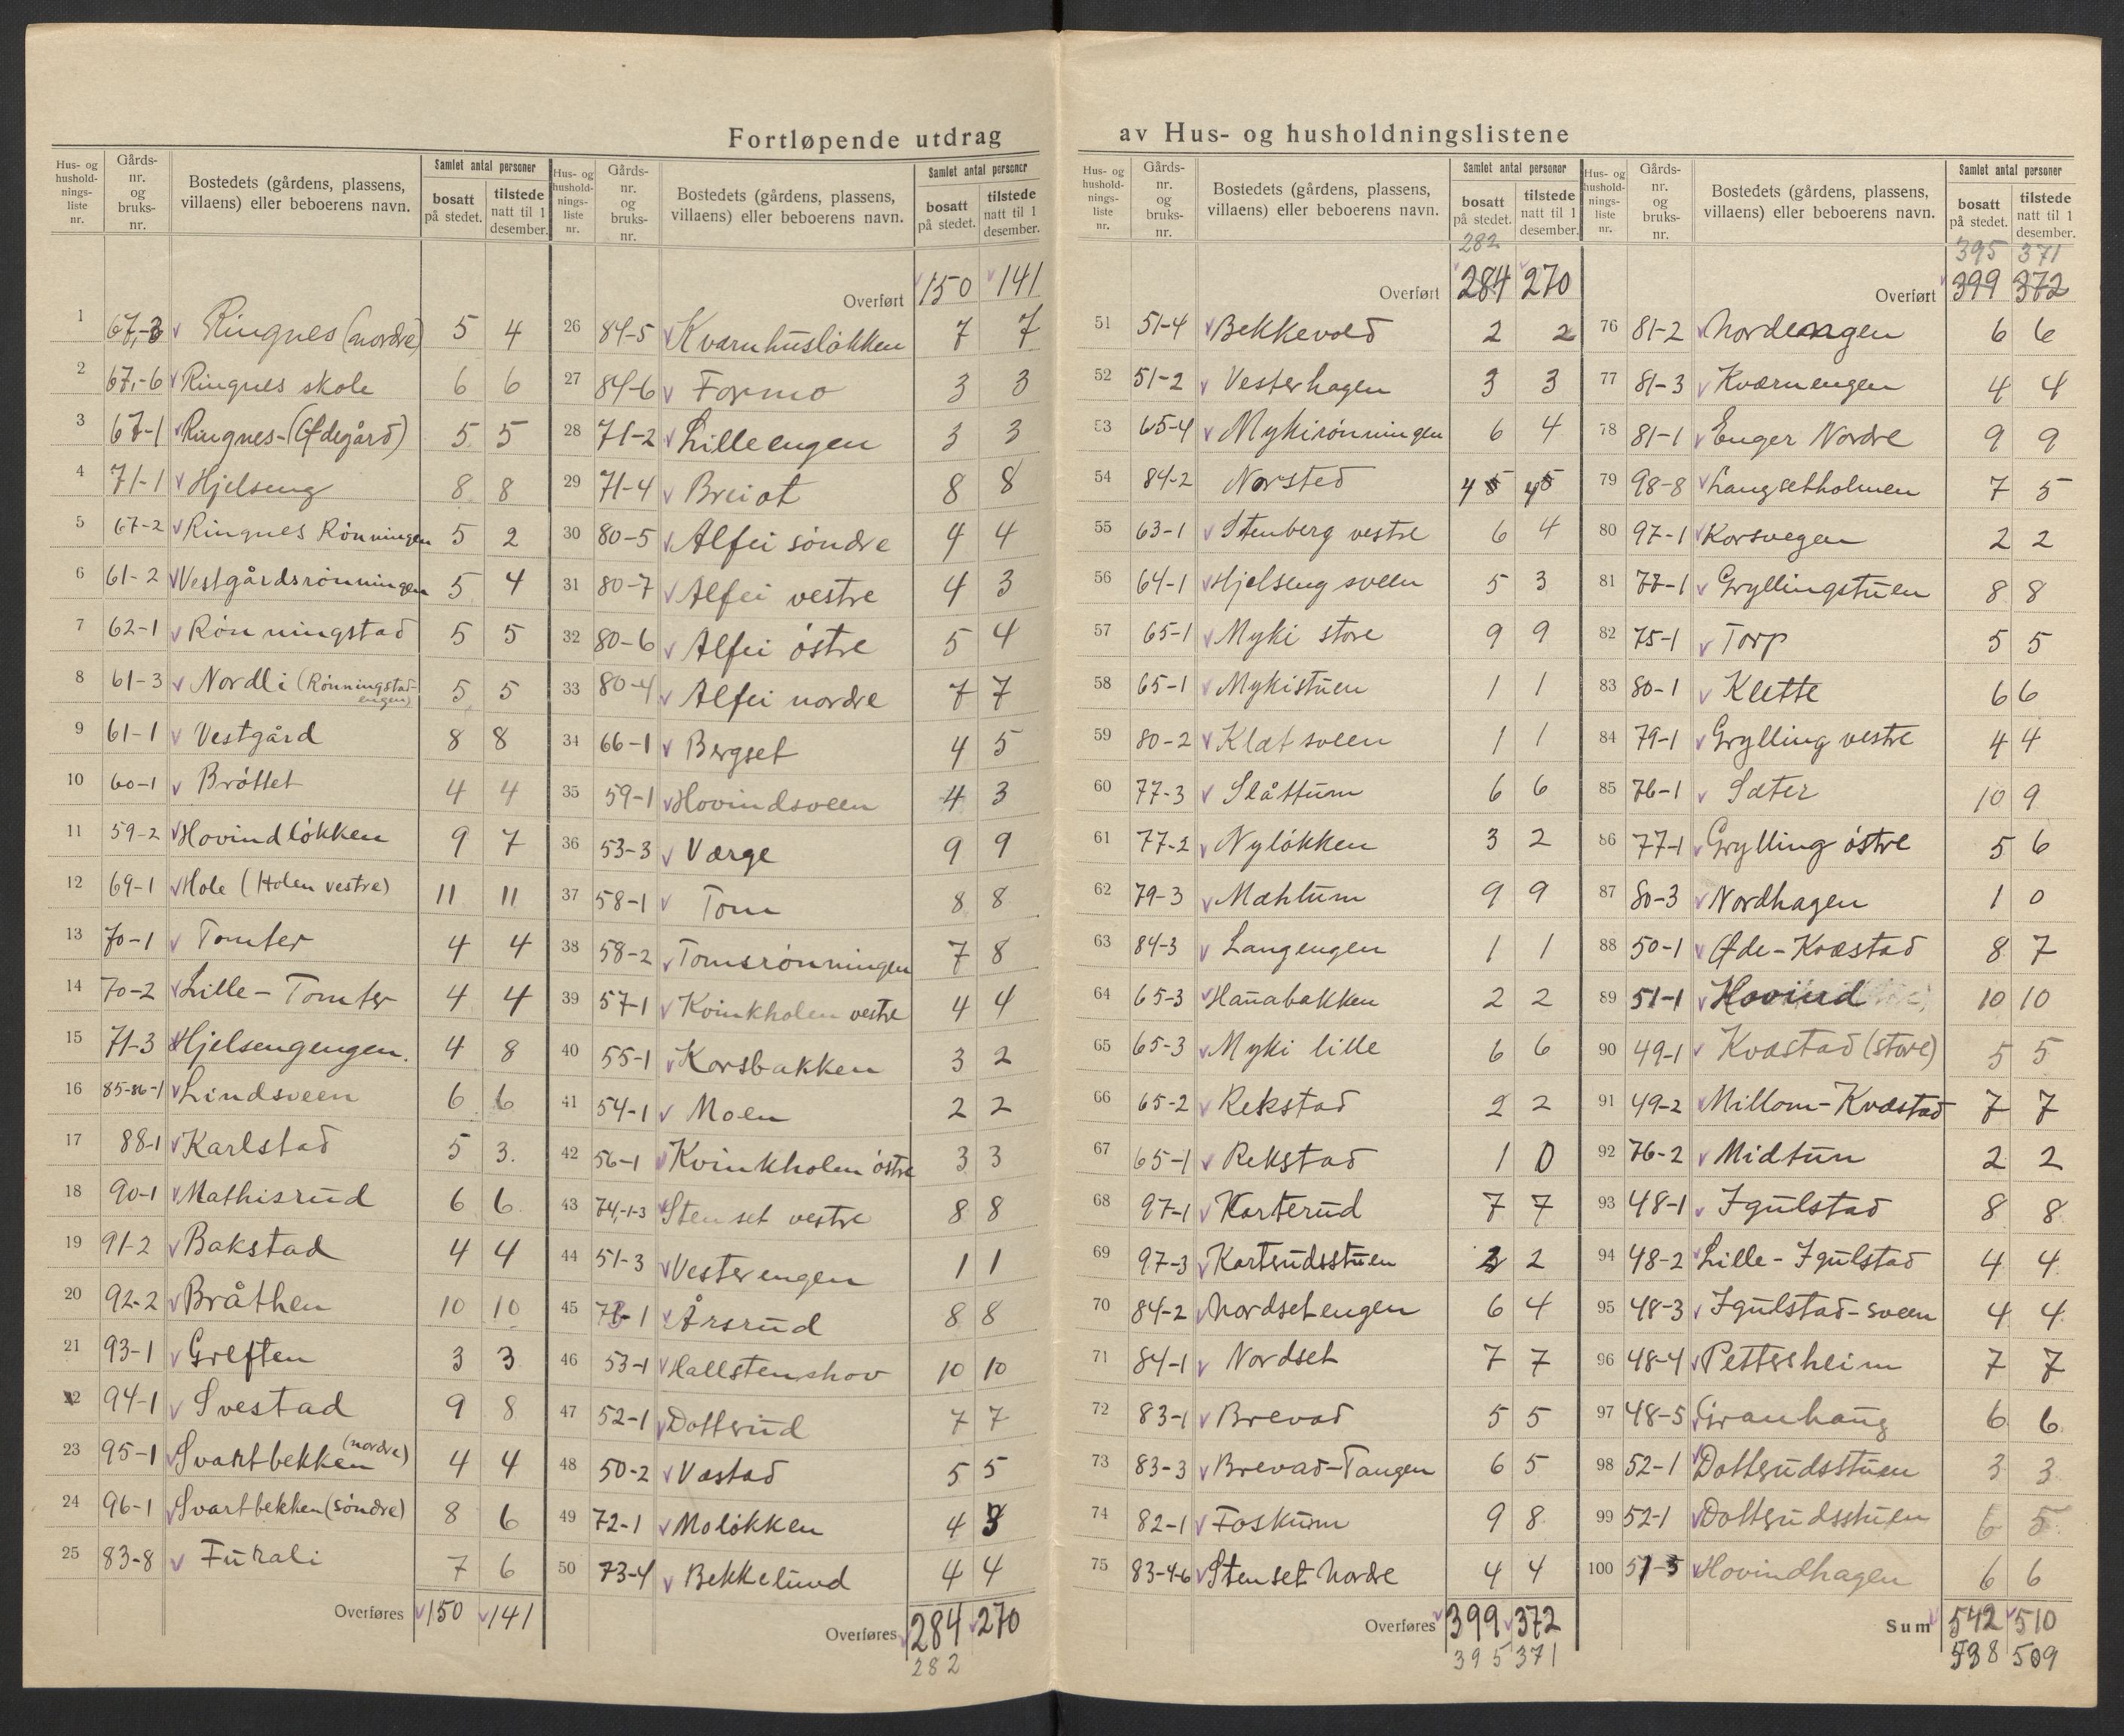 Fortløpende utdrag
Hus- og hushold- nings- liste nr. | Gårds- nr. og bruks- nr. | Bostedets (gårdens, plassens, villaens) eller beboerens navn. | Samlet antal personer | bosatt på stedet. | tilstede natt til 1 desember.
1 67,-3 Ringnes (nordre) 5 4
2 67,-6 Ringnes skole 6 6
3 67-1 Ringnes-(Ødegård) 5 5
4 71-1 Hjelseng 8 8
5 67-2 Ringnes Rønningen 5 2
6 61-2 Vestgårdsrønningen 5 4
7 62-1 Rønningstad 5 5
8 61-3 Nordli (Rønningstad-engen) 5 5
9 61-1 Vestgård 8 8
10 60-1 Brøttet 4 4
11 59-2 Hovindløkken 9 7
12 69-1 Hole (Holen vestre) 11 11
13 70-1 Tomter 4 4
14 70-2 Lille-Tomter 4 4
15 71-3 Hjelsengengen. 4 8
16 85-86-1 Lindsveen 6 6
17 88-1 Karlstad 5 3.
18 90-1 Mathisrud 6 6
19 91-2 Bakstad 4 4
20 92-2 Bråthen 10 10
21 93-1 Greften 3 3
22 94-1 Svestad 9 8
23 95-1 Svartbekken (nordre) 4 4
24 96-1 Svartbekken (søndre) 8 6
25 83-8 Furali 7 6
Overføres 150 141
Hus- og hushold- nings- liste nr. | Gårds- nr. og bruks- nr. | Bostedets (gårdens, plassens, villaens) eller beboerens navn. | Samlet antal personer | bosatt på stedet. | tilstede natt til 1 desember.
Overført 150 141
26 84-5 Kvarnhusløkken 7 7
27 84-6 Formo 3 3
28 71-2 Lilleengen 3 3
29 71-4 Breiot 8 8
30 80-5 Alfei søndre 4 4
31 80-7 Alfei vestre 4 3
32 80-6 Alfei østre 5 4
33 80-4 Alfei nordre 7 7
34 66-1 Bergset 4 5
35 59-1 Hovindsveen 4 3
36 53-3 Værge 9 9
37 58-1 Tom 8 8
38 58-2 Tomsrønningen 7 8
39 57-1 Kvinkholen vestre 4 4
40 55-1 Korsbakken 3 2
41 54-1 Moen 2 2
42 56-1 Kvinkholen østre 3 3
43 74,-1-3 Stenset vestre 8 8
44 51-3 Vesterengen 1 1
45 78-1 Årsrud 8 8
46 53-1 Hallstenshov 10 10
47 52-1 Dotterud 7 7
48 50-2 Væstad 5 5
49 72-1 Moløkken 4 3
50 73-4 Bekkelund 4 4
Overføres 284 270
282
av Hus- og husholdningslistene
Hus- og hushold- nings- liste nr. | Gårds- nr. og bruks- nr. | Bostedets (gårdens, plassens, villaens) eller beboerens navn. | Samlet antal personer | bosatt på stedet. | tilstede natt til 1 desember.
282
Overført 284 270
51 51-4 Bekkevold 2 2
52 51-2 Vesterhagen 3 3
53 65-4 Mykirønningen 6 4
54 84-2 Norsted 4 5 4 5
55 63-1 Stenberg vestre 6 4
56 64-1 Hjelseng sveen 5 3
57 65-1 Myki store 9 9
58 65-1 Mykistuen 1 1
59 80-2 Klætsveen 1 1
60 77-3 Slåttum 6 6
61 77-2 Nyløkken 3 2
62 79-3 Mæhtum 9 9
63 84-3 Langengen 1 1
64 65-3 Hanabakken 2 2
65 65-3 Myki lille 6 6
66 65-2 Rekstad 2 2
67 65-1 Rekstad 1 0
68 97-1 Karterud 7 7
69 97-3 Karterudsstuen 2 2
70 84-2 Nordsetengen 6 4
71 84-1 Nordset 7 7
72 83-1 Brevad 5 5
73 83-3 Brevad-Tangen 6 5
74 82-1 Foskum 9 8
75 83-4-6 Stenset Nordre 4 4
Overføres 399 372
395 371
Hus- og hushold- nings- liste nr. | Gårds- nr. og bruks- nr. | Bostedets (gårdens, plassens, villaens) eller beboerens navn. | Samlet antal personer | bosatt på stedet. | tilstede natt til 1 desember.
395 371
Overført 399 372
76 81-2 Nordengen 6 6
77 81-3 Kværnengen 4 4
78 81-1 Enger Nordre 9 9
79 98-8 Langsetholmen 7 5
80 97-1 Korsvegen 2 2
81 77-1 Gryllingstuen 8 8
82 75-1 Torp 5 5
83 80-1 Klette 6 6
84 79-1 Grylling vestre 4 4
85 76-1 Sæter 10 9
86 77-1 Grylling østre 5 6
87 80-3 Nordhagen 1 0
88 50-1 Øde-Kvæstad 8 7
89 51-1 Hovind 10 10
90 49-1 Kvæstad (store) 5 5
91 49-2 Millom-Kvæstad 7 7
92 76-2 Midtun 2 2
93 48-1 Igulstad 8 8
94 48-2 Lille-Igulstad 4 4
95 48-3 Igulstad-sveen 4 4
96 48-4 Pettersheim 7 7
97 48-5 Granhaug 6 6
98 52-1 Dotterudsstuen 3 3
99 52-1 Dotterudsstuen 6 5
100 51-5 Hovindhagen 6 6
Sum 542 510
538 509